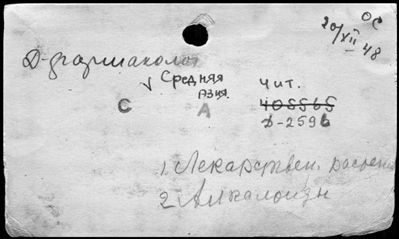 ОС
20/XII 48
Д-фармаколог
Средняя
Азия.
Чит.
405565
Д-2596
С А
1. Лекарствен. растен
2. Алкалоиды